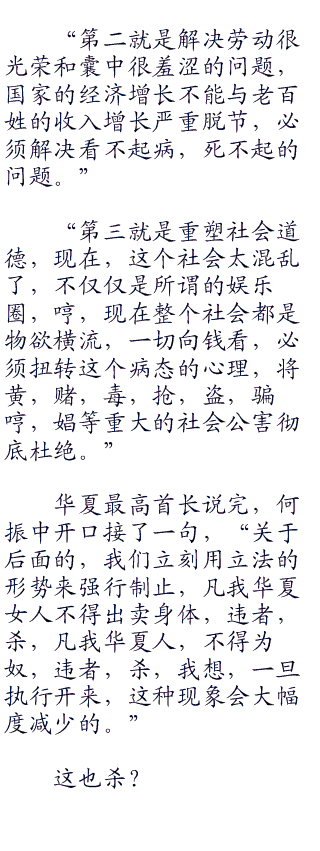 “第二就是解决劳动很
光荣和囊中很羞涩的问题，
国家的经济增长不能与老百
姓的收入增长严重脱节，必
须解决看不起病，死不起的
问题。”
“第三就是重塑社会道
德，现在，这个社会太混乱
了，不仅仅是所谓的娱乐
圈，哼，现在整个社会都是
物欲横流，一切向钱看，必
须扭转这个病态的心理，将
黄，赌，毒，抢，盗，骗
哼，娼等重大的社会公害彻
底杜绝。”
华夏最高首长说完，何
振中开口接了一句，“关于
后面的，我们立刻用立法的
形势来强行制止，凡我华夏
女人不得出卖身体，违者，
杀，凡我华夏人，不得为
奴，违者，杀，我想，一旦
执行开来，这种现象会大幅
度减少的。”
这也杀？